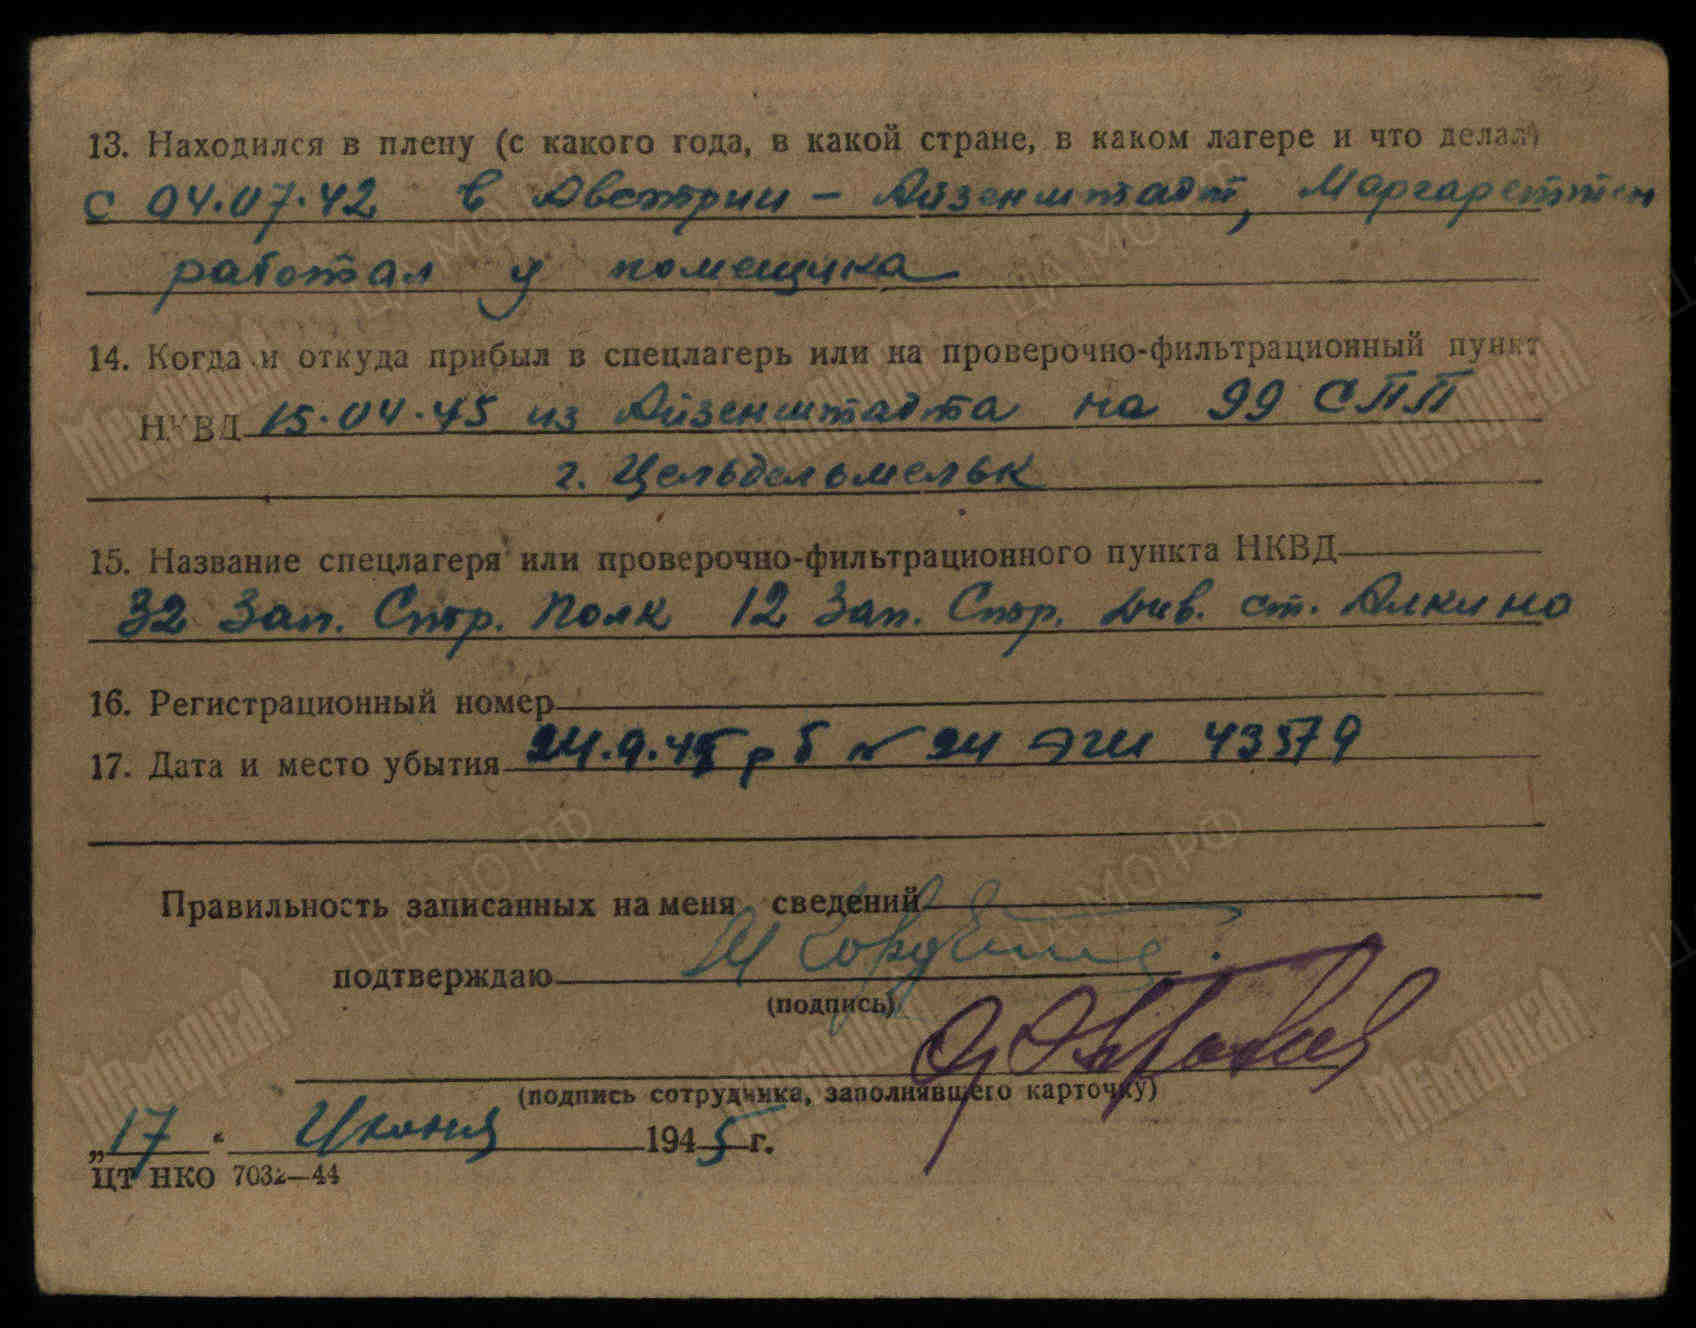 13. Находился в плену (с какого года, в какой стране, в каком лагере и что делал)
с 04.07.42 в Австрии – Айзенштадт, Маргареттен
работал у помещика
14. Когда и откуда прибыл в спецлагерь или на проверочно-фильтрационный пункт
НКВД 15.04.45 из Айзенштадта на 99 СПП
г. Цельдельмельк
15. Название спецлагеря или проверочно-фильтрационного пункта НКВД
32 Зап. Стр. Полк 12 Зап. Стр. Див. ст. Алкино
16. Регистрационный номер
17. Дата и место убытия 24.9.45 р б № 24 43579
Правильность записанных на меня сведений
подтверждаю
(подпись)
(подпись сотрудника, заполнявшего карточку)
„17" Июня 1945 г.
ЦТ НКО 7032—44
ЦА МО РФ
Мемориал